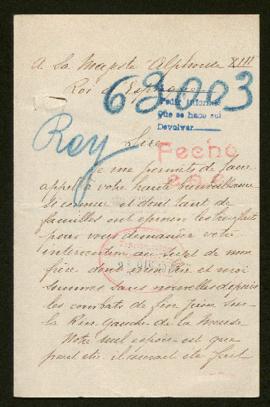 A Sa Majesté Alphonse XIII
Roi d'Espagne
63003
Pedir informe
que se hace sol
Devolver
Rey
Sire
Fecho
Je me permets de faire
appel à votre haute bienveillance
si connue et dont tant de
familles ont éprouvé les
pour vous demander votre
intervention au sujet de mon
frère dont et moi
sommes sans nouvelles depuis
les combats de fin Juin sur
la Rive gauche de la Meuse
Notre seul espoir est que
peut être il serait